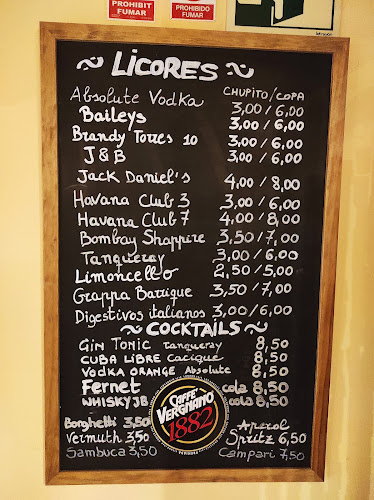 PROHIBIT
FUMAR
PROHIBIDO
FUMAR
~ LICORES ~
CHUPITO/COPA
Absolute Vodka 3,00/6,00
Baileys 3,00/6,00
Brandy Torres 10 3,00/6,00
J&B 3,00/6,00
Jack Daniel's 4,00/8,00
Havana Club 3 3,00/6,00
Havana Club 7 4,00/8,00
Bombay Shappire 3,50/7,00
Tanqueray 3,00/6,00
Limoncello 2,50/5,00
Grappa Barrique 3,50/7,00
Digestivos italianos 3,00/6,00
~ COCKTAILS ~
GIN TONIC Tanqueray 8,50
CUBA LIBRE Cacique 8,50
VODKA ORANGE Absolute 8,50
Fernet cola 8,50
WHISKY JB cola 8,50
CAFFÈ
VERGNANO
1882
Borghetti 3,50
Vermuth 3,50
Sambuca 3,50
Aperol
Spritz 6,50
Campari 7,50